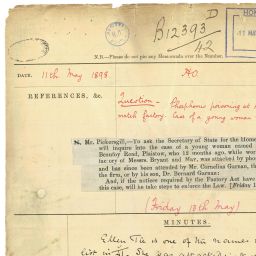 B12393 D
/42
N.B.—Please do not pin any Memoranda over the Number.
DATE. 11th May 1898 HO
REFERENCES, &c.
Question - Phosphorus poisoning at
match factory. Case of a young woman
8. Mr. Pickersgill,—To ask the Secretary of State for the Home
will inquire into the case of a young woman named
Street, Plaistow, who 12 months ago, while
factory of Messrs. Bryant and May, was attacked by phosph
and has since been attended by Mr. Cornelius Garman, the
firm, or by his son, Dr. Bernard Garman:
And, if the notices required by the Factory Act have
this case, will he take steps to enforce the Law. [Friday 1
(Friday 13th May)
MINUTES.
is one of the names
list in